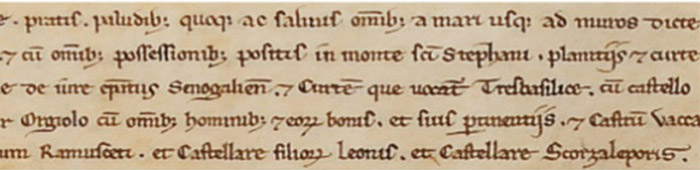 e. pratis. paludib; quoq; ac salinis om̄ib; a mari usq; ad muros dicte
⁊ cū om̄ib; possessionib; positis in monte sc̄i Stephani. planitijs ⁊ curte
e de iure Senogalien̄. ⁊ Curtē que uocat̄ Tresbasilice. cū castello
r Orgiolo cū om̄ib; hominib; ⁊ eoꝝ bonis. et suis ꝑtinentijs. ⁊ Castrū Vacca
um Ramusceti. et Castellare filioꝝ Leonis. et Castellare Scorzaleporis.